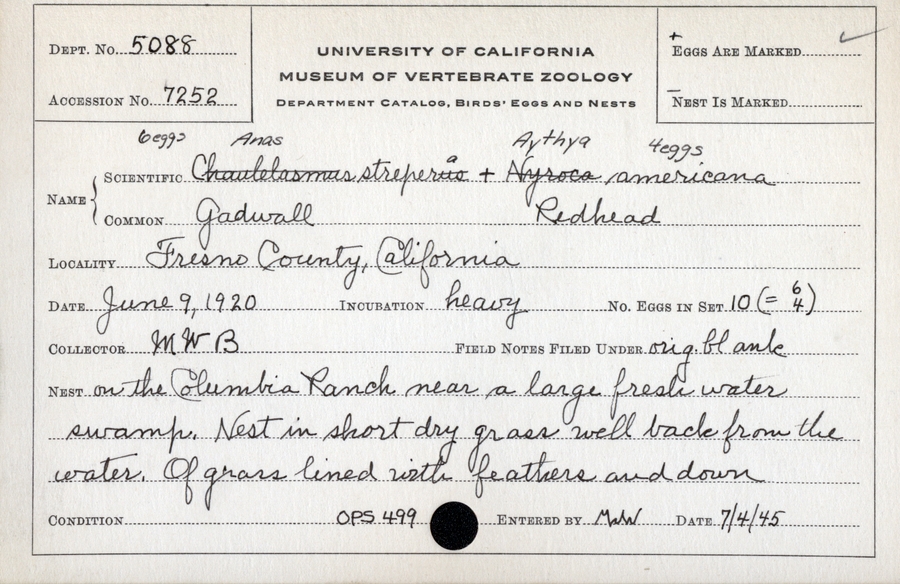 DEPT. No. 5088
ACCESSION No. 7252
UNIVERSITY OF CALIFORNIA
MUSEUM OF VERTEBRATE ZOOLOGY
DEPARTMENT CATALOG, BIRDS' EGGS AND NESTS
+ EGGS ARE MARKED
– NEST IS MARKED
6 eggs Anas Aythya 4 eggs
NAME { SCIENTIFIC Chaulelasmus streperus a + Nyroca americana
COMMON Gadwall Redhead
LOCALITY Fresno County, California
DATE June 9, 1920 INCUBATION heavy No. EGGS IN SET 10 (= 6 4)
COLLECTOR M W B FIELD NOTES FILED UNDER orig. blank
NEST on the Columbia Ranch near a large fresh water
swamp. Nest in short dry grass well back from the
water. Of grass lined with feathers and down
CONDITION OPS 499 ENTERED BY DATE 7/4/45